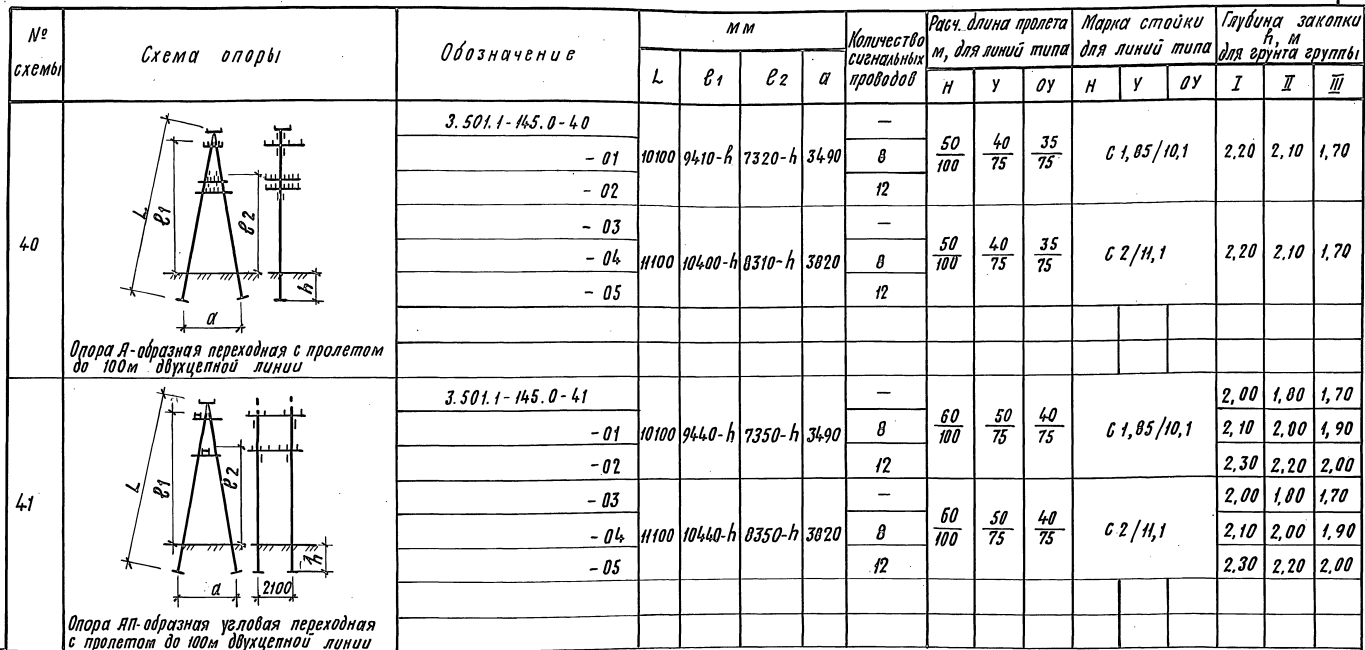 № схемы
Схема опоры
Обозначение
мм
L ℓ1 ℓ2 a
Количество сигнальных проводов
Расч. длина пролета м, для линий типа
Н У ОУ
Марка стойки для линий типа
Н У ОУ
Глубина закопки h, м для грунта группы
I II III
40
L ℓ1 ℓ2 h a
Опора А-образная переходная с пролетом
до 100м двухцепной линии
3.501.1-145.0-40 —
- 01 10100 9410-h 7320-h 3490 8 50/100 40/75 35/75 С 1,85/10,1 2,20 2,10 1,70
- 02 12
- 03 —
- 04 11100 10400-h 8310-h 3820 8 50/100 40/75 35/75 С 2/11,1 2,20 2,10 1,70
- 05 12
41
L ℓ1 ℓ2 h a 2100
Опора АП-образная угловая переходная
с пролетом до 100м двухцепной линии
3.501.1-145.0-41 — 2,00 1,80 1,70
- 01 10100 9440-h 7350-h 3490 8 60/100 50/75 40/75 С 1,85/10,1 2,10 2,00 1,90
- 02 12 2,30 2,20 2,00
- 03 — 2,00 1,80 1,70
- 04 11100 10440-h 8350-h 3820 8 60/100 50/75 40/75 С 2/11,1 2,10 2,00 1,90
- 05 12 2,30 2,20 2,00